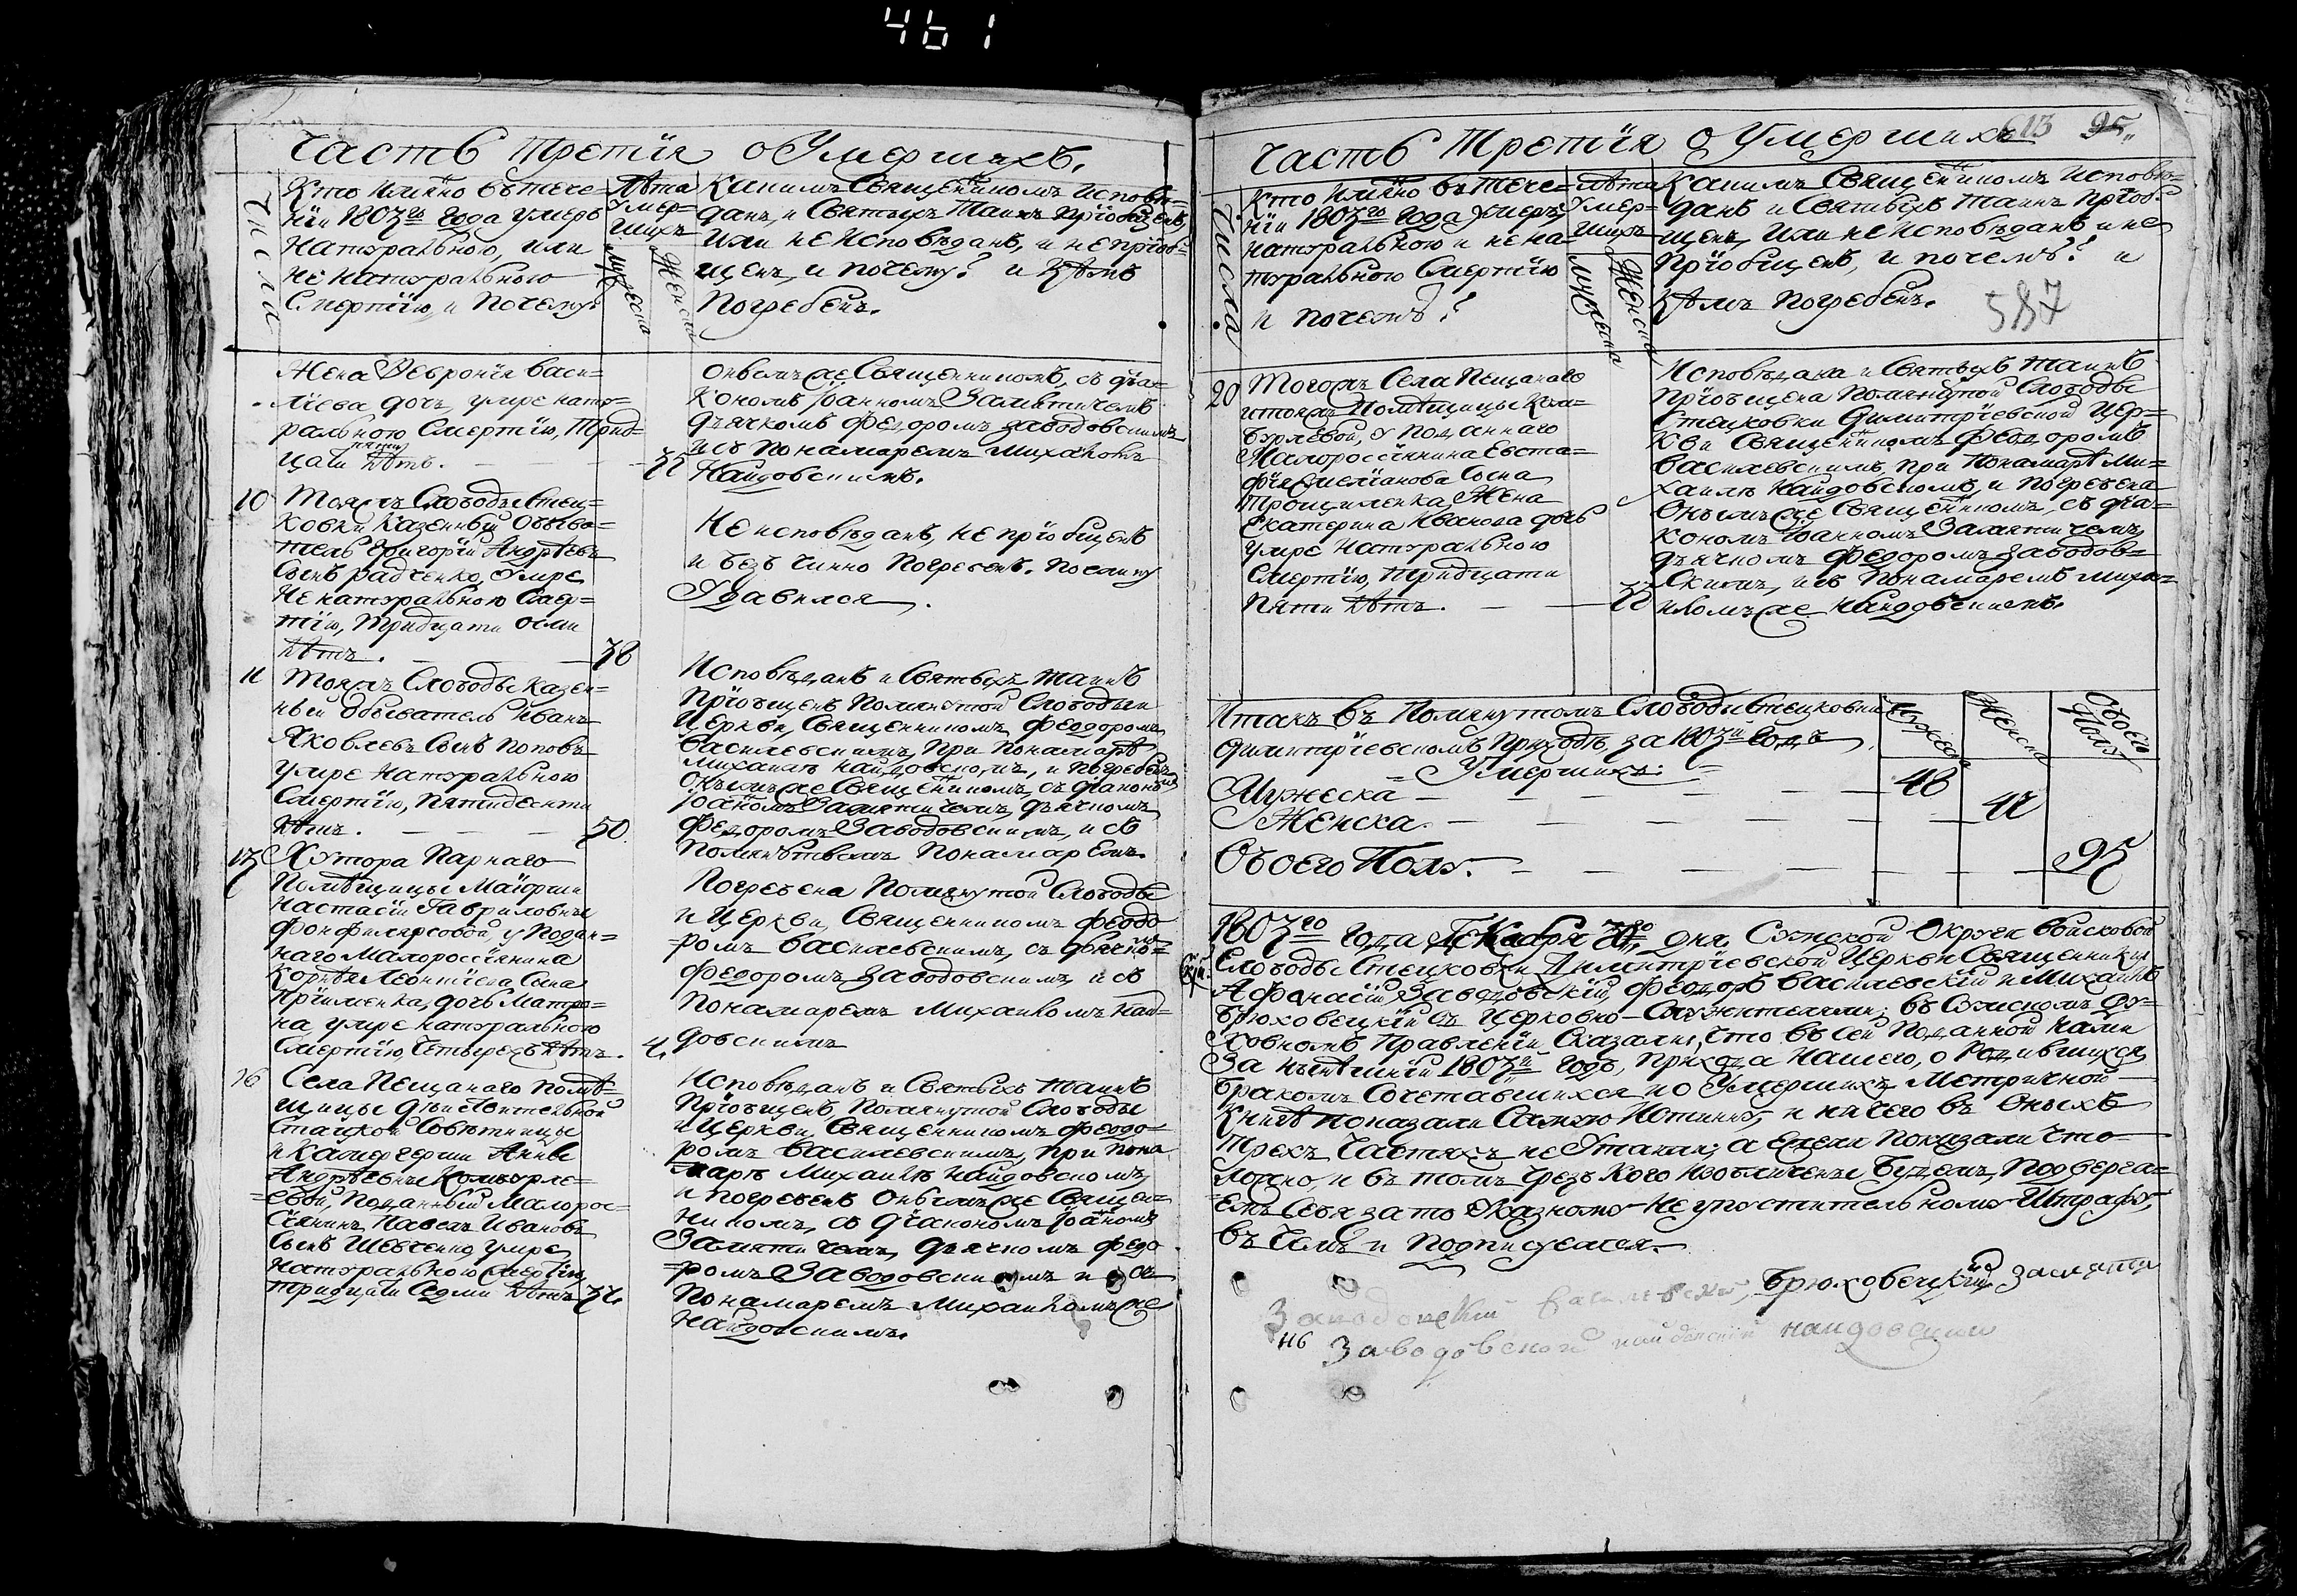 461
Часть Третїя о Умершихъ.
Числа
Кто имѧнно въ тече=
нїи 1803го года умеръ
Натуральною, или
не натуральною
Смертїю, и почему?
Лѣта
Умер=
шихъ
Мужеска
Женска
Какимъ Священникомъ Исповѣ=
данъ, и Святыхъ Таинъ прїобщенъ,
или не Исповѣданъ, и не прїоб=
щенъ, и почему? и кѣмъ
Погребенъ.
Жена Ѳевронїя Васи=
лїева дочь, умре нату=
ральною Смертїю, Трид=
цати пяти лѣтъ.
онымъ же Священникомъ, съ дїа=
кономъ Іоанномъ Замятичемъ
дьячкомъ Ѳедоромъ Заводовскимъ
и съ Понамаремъ Михаиломъ
Найдовскимъ.
10
Тояжъ Слободы Стец=
ковки Казенный Обыва=
тель Григорїй Андрѣевъ
Сынъ Радченко, Умре
не натуральною Смер=
тїю, Тридцати осми
лѣтъ. 38
Не исповѣданъ, не прїобщенъ
и безъ чинно Погребенъ. Поелику
Удавился.
11
Тояжъ Слободы Казен=
ный Обыватель Иванъ
Яковлевъ Сынъ Поповъ
умре Натуральною
Смертїю, Пятидесяти
лѣтъ. 50
Исповѣданъ и Святыхъ Таинъ
Прїобщенъ Помянутой Слободы и
Церкви, Священникомъ Ѳеодоромъ
Василевскимъ, при Понамарѣ
Михаилѣ Найдовскомъ, и погребенъ
Онымъ же Священникомъ, съ дїакономъ
Іоанномъ Замятичемъ, дьячкомъ
Ѳедоромъ Заводовскимъ, и съ
Помянутымъ Понамаремъ.
13
Хутора Парнаго
Помѣщицы Маїорши
Настасїи Гавриловны
у Подан=
наго Малороссїянина
Корнѣя Леонтїева Сына
дочь Матро=
на, умре натуральною
Смертїю, Четырехъ лѣтъ. 4.
Погребена Помянутой Слободы
и Церкви, Священникомъ Ѳеодо=
ромъ Василевскимъ, съ дьячко=
Ѳедоромъ Заводовскимъ, и съ
Понамаремъ Михаиломъ Най=
довскимъ
16
Села Пещанаго Помѣ=
щицы дѣйствительной
Статской Совѣтницы
и Камергерши Анны
Андрѣевны Комбурле=
евой, Поданный Малорос=
сїянинъ, Павелъ Ивановъ
Сынъ Шевченко, умре
Натуральною Смертїю,
тридцати Седми лѣтъ 37.
Исповѣданъ и Святыхъ Таинъ
Прїобщенъ, Помянутой Слободы
и Церкви, Священникомъ Ѳеодо=
ромъ Василевскимъ, при пона
марѣ Михаилѣ Найдовскомъ,
и погребенъ Онымъ же Священ=
никомъ, съ дїакономъ Іоанномъ
Замятичемъ, дьячкомъ Ѳедо
ромъ Заводовскимъ и съ
Понамаремъ Михаиломъ же
Найдовскимъ.
Часть Третїя о Умершихъ
613 95
Числа
Кто имѧнно въ Тече=
нїи 1803го года умеръ,
натуральною и не на=
туральною Смертїю
и почемъ?
Лѣта
Умер=
шихъ
Мужеска
Женска
Какимъ Священникомъ Исповѣ=
данъ и Святыхъ Таинъ прїоб=
щенъ, или не Исповѣданъ и не
Прїобщенъ, и почемъ? и
кѣмъ погребенъ.
587
20
Тогожъ Села Пещанаго
и тояжъ Помѣщицы Ком=
бурлеевой, у поданнаго
Малороссїянина Евста=
фїя Емельянова Сына
Трощиленка Жена
Екатерина Иванова дочь
умре Натуральною
Смертїю, тридцати
пяти лѣтъ.
Исповѣдана и Святыхъ Таинъ
Прїобщена Помянутой Слободы
Стецковки Димитрїевской Цер=
кви Священникомъ Ѳеодоромъ
Василевскимъ, при Понамарѣ Ми=
хаилѣ Найдовскомъ, и погребена
Онымъ же Священникомъ, съ дїа=
кономъ Іоанномъ Замятичемъ,
дьячкомъ Ѳедоромъ Заводов=
скимъ, и съ Понамаремъ Миха=
иломъ же Найдовскимъ.
Итакъ въ Помянутомъ Слободы Стецковки
Димитрїевскомъ Приходѣ, за 1803й Годъ
Умершихъ:
Мужеска
Женска
Обоего Полу
Мужеска 48
Женска. 47
Обоего Полу. 95
1803го года Декабря 30го дня, Сумской Округи Войсковой
Слободы Стецковки Димитрїевской Церкви Священники
Афанасїй Заводовскїй, Ѳеодоръ Василевскїй и Михаилъ
Брюховецкїй съ Церковно-Служителями; въ Сумскомъ Ду=
ховномъ Правленїи Сказали, что въ сей Поданной нами
За нынѣшнїй 1803й годъ, прихода нашего, о Родившихся
Бракомъ Сочетавшихся и о Умершихъ Метричной
Книгѣ показали Самую Истинну, и ничего въ Оныхъ
Трехъ Частяхъ не Утаили; а Ежели показали что
Ложно, и въ томъ Чрезъ Кого изобличены Будемъ, Подверга=
емъ Себя за то Указному Неупустительному Штрафу,
въ Чемъ и Подписуемся.
Заводовскїй Василевскїй, Брюховецкїй, Замяти
Заводовской Найдовскїй Найдовский